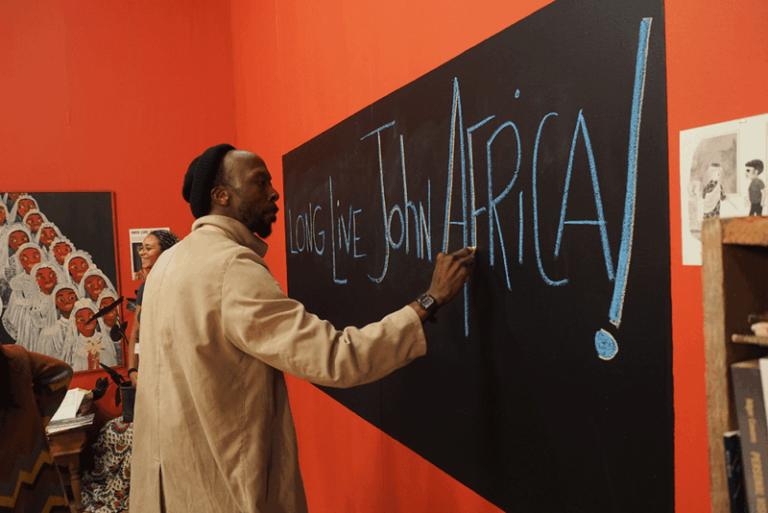 LONG LIVE John AFRiCA!